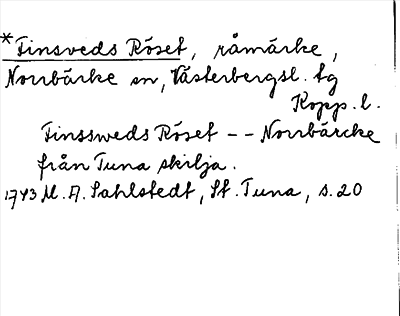 *Finsveds Röset, råmärke,
Norrbärke sn, Västerbergsl. tg
Kopp. l.
Finssweds Röset - - Norrbärcke
från Tuna skilja.
1743 M. A. Sahlstedt, St. Tuna, s. 20